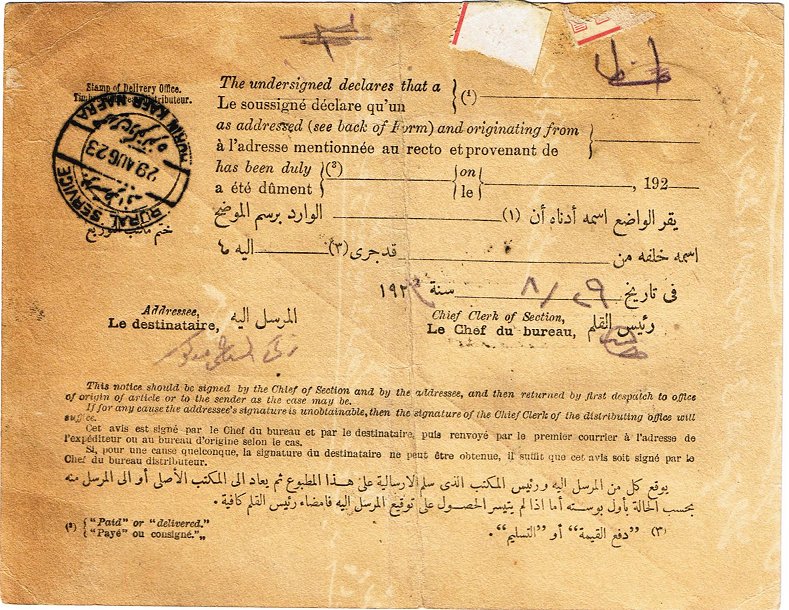 Stamp of Delivery Office.
Timbre du bureau distributeur.
RURAL SERVICE
29 AUG 23
The undersigned declares that a
(¹)
Le soussigné déclare qu'un
as addressed (see back of Form) and originating from
à l'adresse mentionnée au recto et provenant de
has been duly (²) on
a été dûment le , 192
يقر الواضع اسمه أدناه أن (١) الوارد برسم الموضح
ختم مكتب التوزيع
اسمه خلفه من قد جرى (٣) اليه ٩٥
فى تاريخ ٢٩/ ٨ سنة ١٩٢
Addressee, المرسل اليه Chief Clerk of Section, رئيس القلم
Le destinataire, Le Chef du bureau,
This notice should be signed by the Chief of Section and by the addressee, and then returned by first despatch to office
of origin of article or to the sender as the case may be.
If for any cause the addressee's signature is unobtainable, then the signature of the Chief Clerk of the distributing office will
suffice.
Cet avis est signé par le Chef du bureau et par le destinataire, puis renvoyé par le premier courrier à l'adresse de
l'expéditeur ou au bureau d'origine selon le cas.
Si, pour une cause quelconque, la signature du destinataire ne peut être obtenue, il suffit que cet avis soit signé par le
Chef du bureau distributeur.
يوقع كل من المرسل اليه ورئيس المكتب الذى سلم الارسالية على هذا المطبوع ثم يعاد الى المكتب الأصلى أو الى المرسل منه
بحسب الحالة بأول بوسته أما اذا لم يتيسر الحصول على توقيع المرسل اليه فامضاء رئيس القلم كافية.
(²) { "Paid" or "delivered."
"Payé" ou consigné."„
(٣) "دفع القيمة" أو "التسليم".